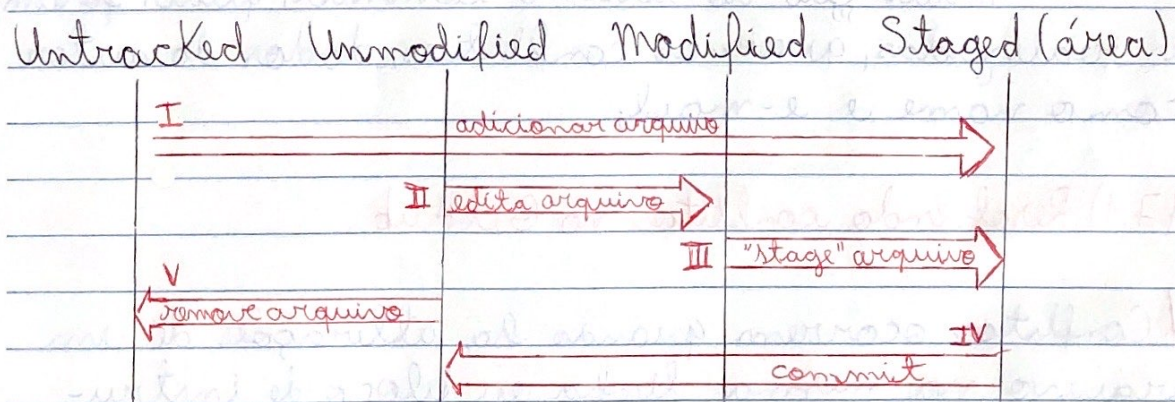 Untracked Unmodified Modified Staged (área)
I
adicionar arquivo
II edita arquivo
III "stage" arquivo
V
remove arquivo
IV
commit